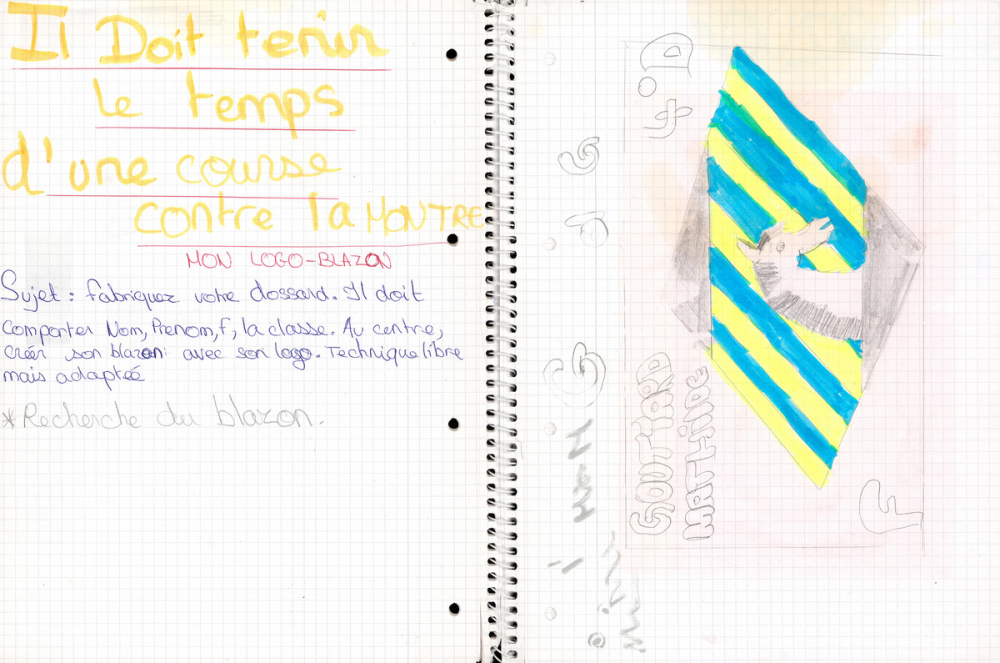 Il Doit tenir
le temps
d'une course
contre la MONTRE
MON LOGO-BLAZON
Sujet : fabriquez votre dossard. Il doit
comporter Nom, Prenom, f, la classe. Au centre,
créer son blazon avec son logo. Technique libre
mais adaptée
*Recherche du blazon.
4°D
GOUTTARD
MATHILDE
F